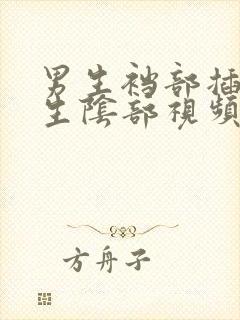 男生裆部插
生陰部視頻
方舟子